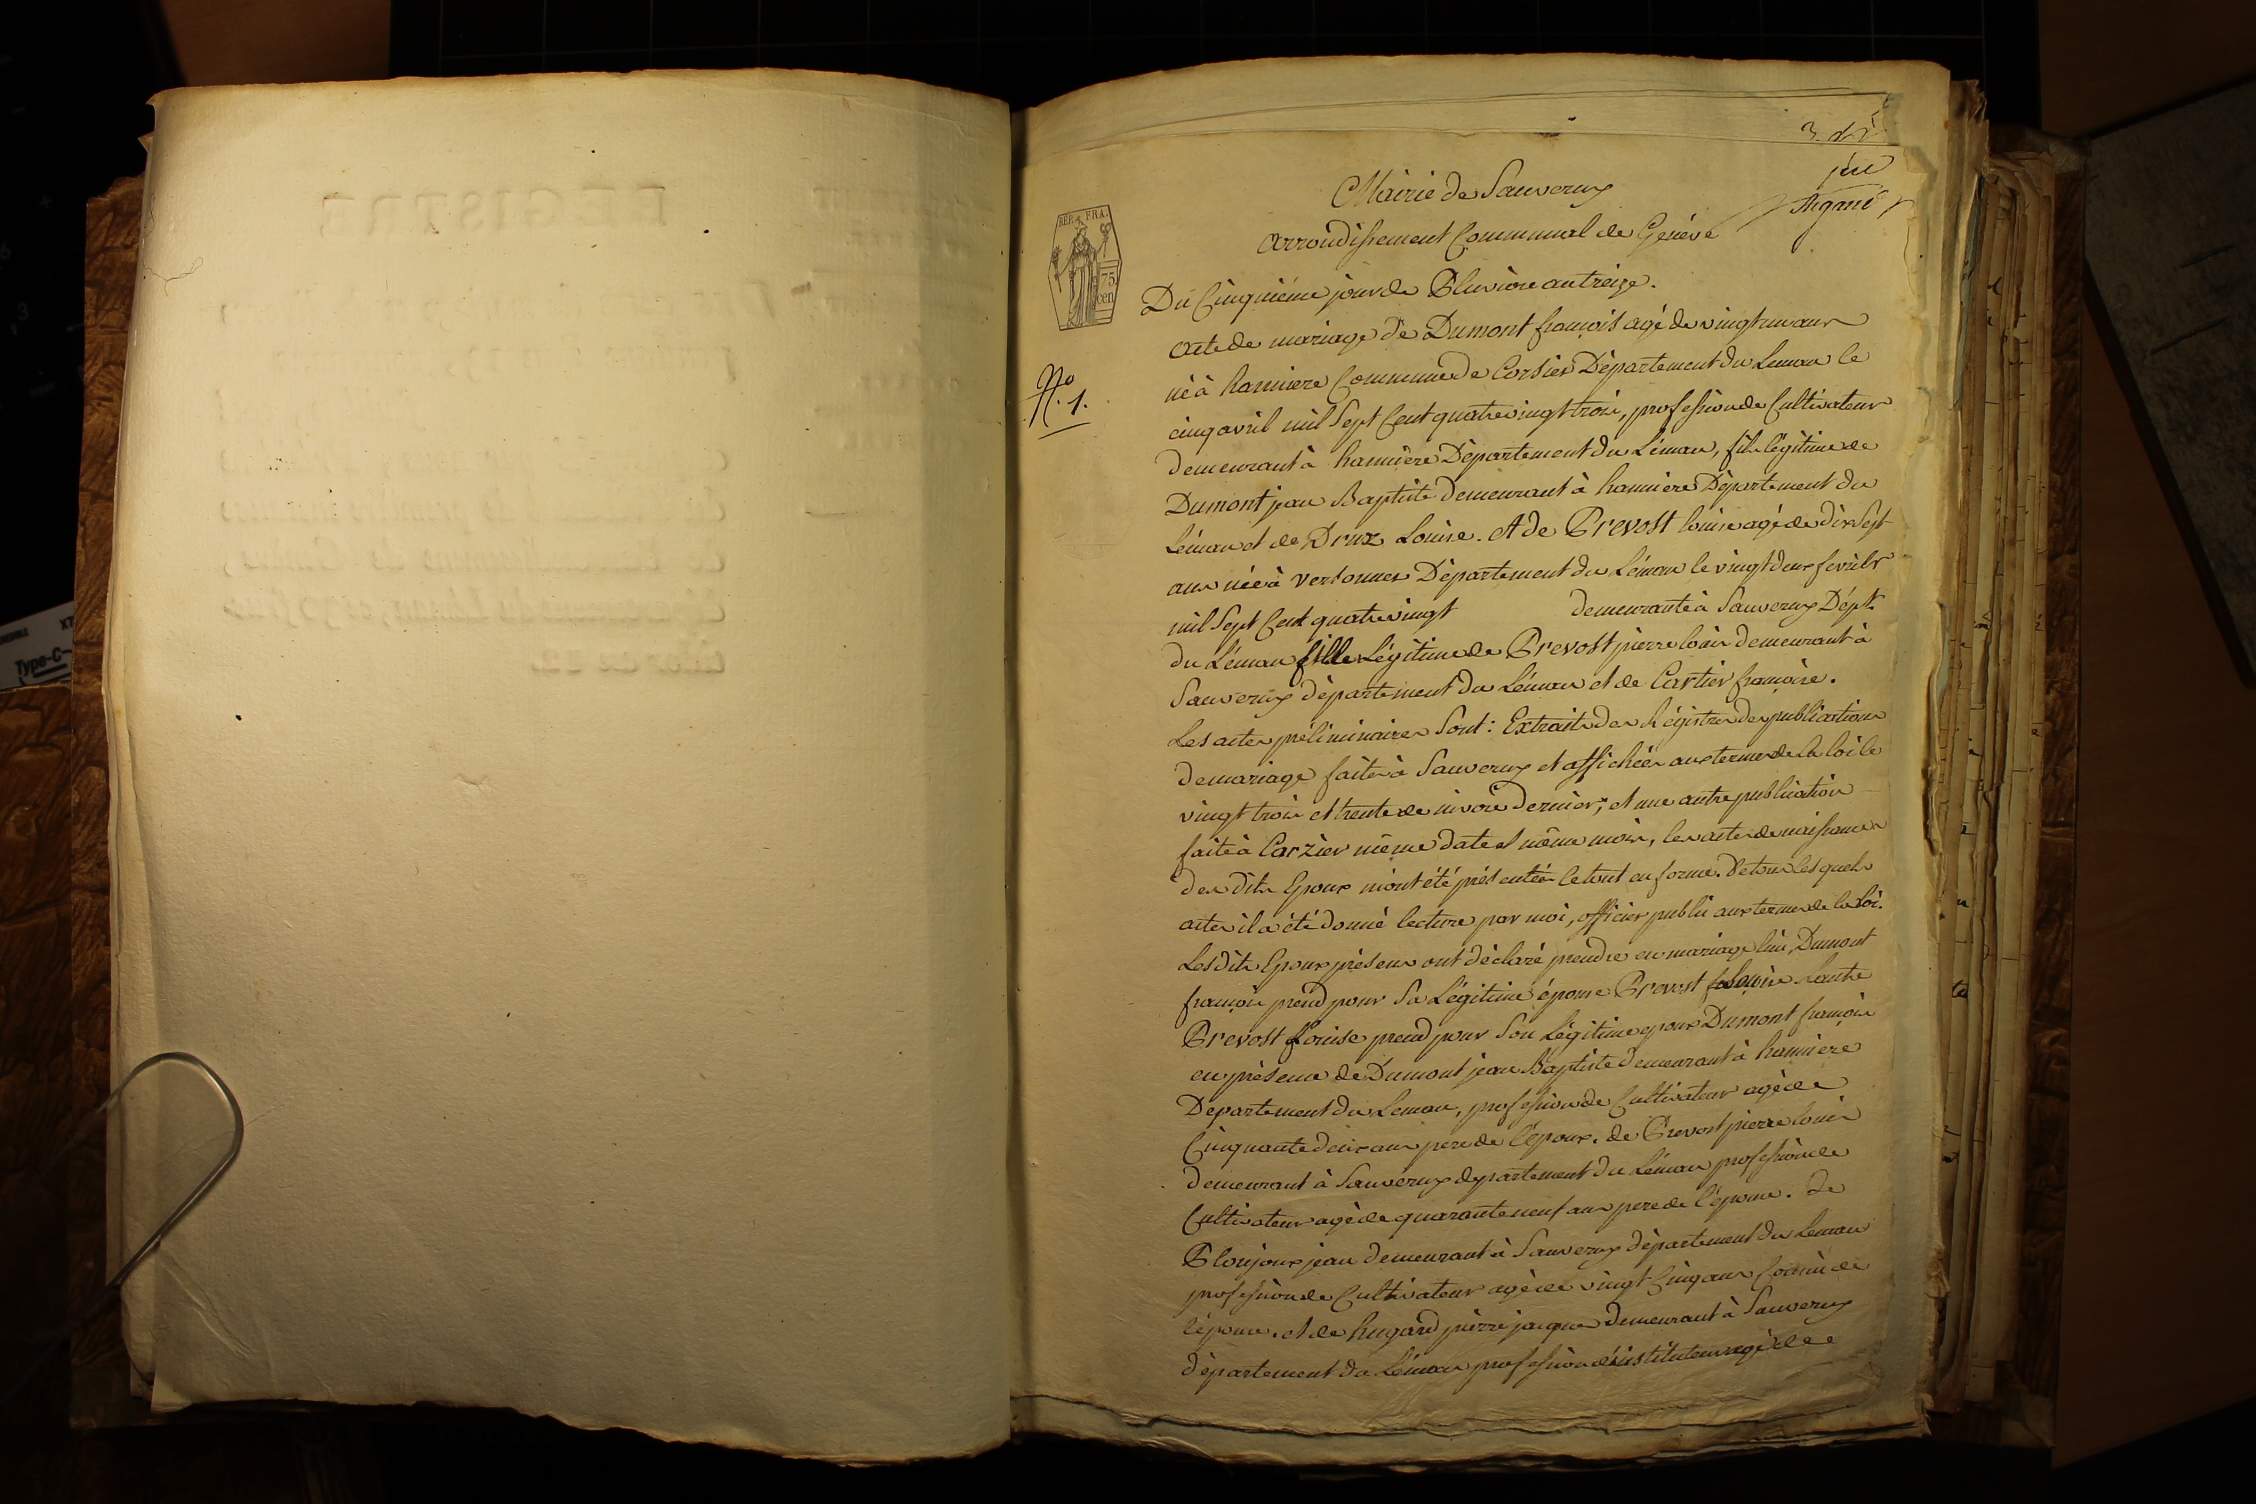 REGISTRE
Mairie de Sauverny
arrondissement Communal de Genève
REP. FRA.
75
cen
Du Cinquième jour de Pluviose an treize.
acte de mariage de Dumont françois agé de vingt un ans
N.o 1.
né à hanniere Commune de Corsier Département du Leman le
cinq avril mil Sept Cent quatre vingt trois, profession de Cultivateur
demeurant à hannière Département du Léman, fils légitime de
Dumont jean Baptiste demeurant à hanniere Département du
Léman et de Druz Louise. et de Prevost louise agé de dix Sept
ans née à versonnex Département du Léman le vingt deux fevrier
mil Sept Cent quatre vingt demeurante à Sauverny Dépt.
du Léman fille Légitime de Prevost pierre louis demeurant à
Sauverny département du Léman et de Cartier françoise.
Les actes préliminaires Sont: Extraits des Régistres de publications
de mariage faites à Sauverny et affichées aux termes de la loi le
vingt trois et trente de nivose dernier, et une autre publication
faite à Corzier même date et même mois, les actes de naissances
des dits Epoux m'ont été présentées le tout en forme. De tous lesquels
actes il a été donné lecture par moi, officier public aux termes de la Loi.
Les dits Epoux présens ont déclaré prendre en mariage lui, Dumont
françois prend pour Sa Légitime épouse Prevost Louise Lautre
Prevost Louise prend pour Son Légitime epoux Dumont françois
en présence de Dumont jean Baptiste demeurant à hanniere
Departement du Leman, profession de Cultivateur agé de
Cinquante deux ans pere de l'époux. de Prevost pierre louis
demeurant à Sauverny département du Léman profession de
Cultivateur agé de quarante neuf ans pere de l'épouse. de
Ploujoux jean demeurant à Sauverny département du Leman
profession de Cultivateur agé de vingt Cinq ans Cousin de
l'épouse. et de hugard pierre jacques demeurant à Sauverny
département du Léman profession d'instituteur agé de
Type-C